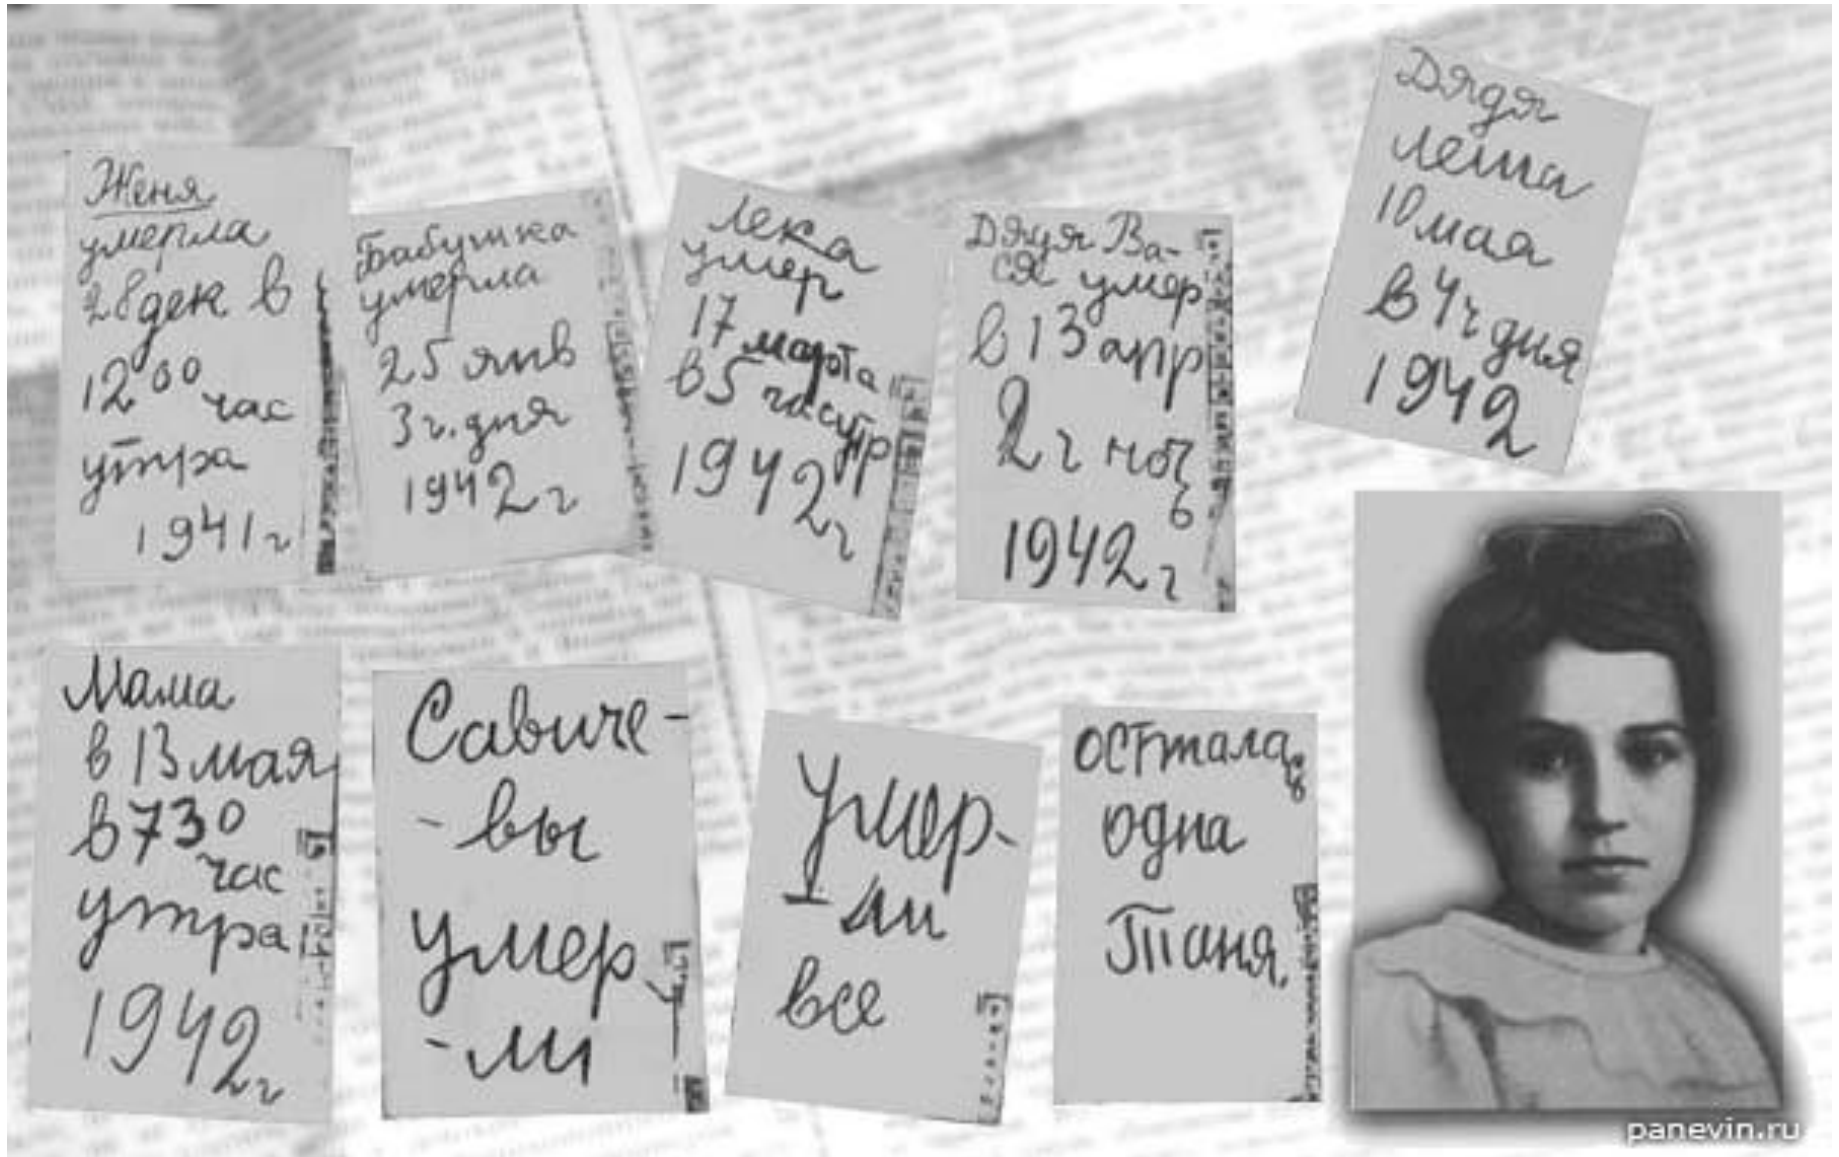 Женя
умерла
28 дек в
12 00 час
утра
1941 г
Бабушка
умерла
25 янв
3 ч. дня
1942 г
Лека
умер
17 марта
в 5 час утр
1942 г
Дядя Ва-
ся умер
в 13 апр
2 ч ноч
ь
1942 г
Дядя
Леша
10 мая
в 4 ч дня
1942
Мама
в 13 мая
в 7 30
час
утра
1942 г
Савиче-
-вы
умер
-ли
Умер-
-ли
все
осталась
одна
Таня.
panevin.ru